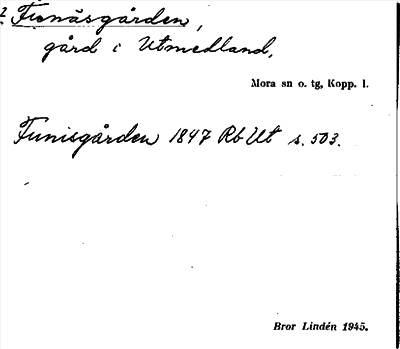 ? Funäsgården,
gård i Utmedland,
Mora sn o. tg, Kopp. l.
Funisgården 1847 Rb Ut s. 503.
Bror Lindén 1945.